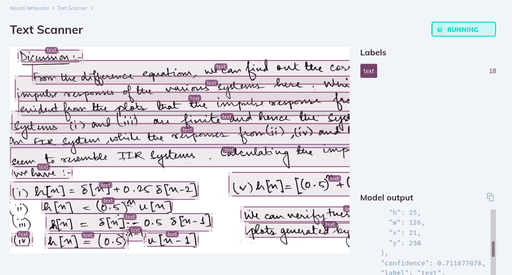 Neural Networks > Text Scanner
Text Scanner
RUNNING
Discussion :-
From the difference equations, we can find out the
impulse response of the various systems here.
evident from the plots that the impulse response
systems (i) and (iii) are finite and hence the
an FIR system, while the responses from (ii), (iv) and
seem to resemble IIR systems. Calculating the
We have :-
(i) h[n] = δ[n] + 0.25 δ[n-2]
(ii) h[n] = (0.5)^n u[n]
(iii) h[n] = δ[n] - 0.5 δ[n-1]
(iv) h[n] = (0.5) u[n-1]
(v) h[n] = [(0.5)
We can verify
plots generated
Labels
text
18
Model output
"h": 25,
"w": 126,
"x": 21,
"y": 258
},
"confidence": 0.711677078,
"label": "text",